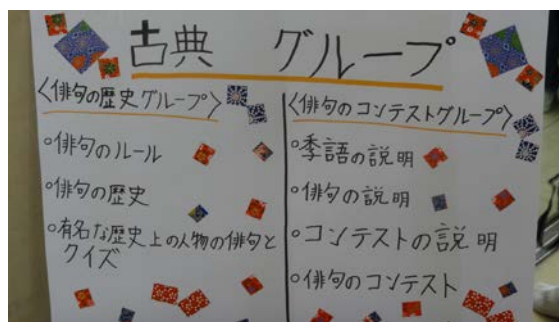 古典 グループ
〈俳句の歴史グループ〉
○俳句のルール
○俳句の歴史
○有名な歴史上の人物の俳句と
クイズ
〈俳句のコンテストグループ〉
○季語の説明
○俳句の説明
○コンテストの説明
○俳句のコンテスト